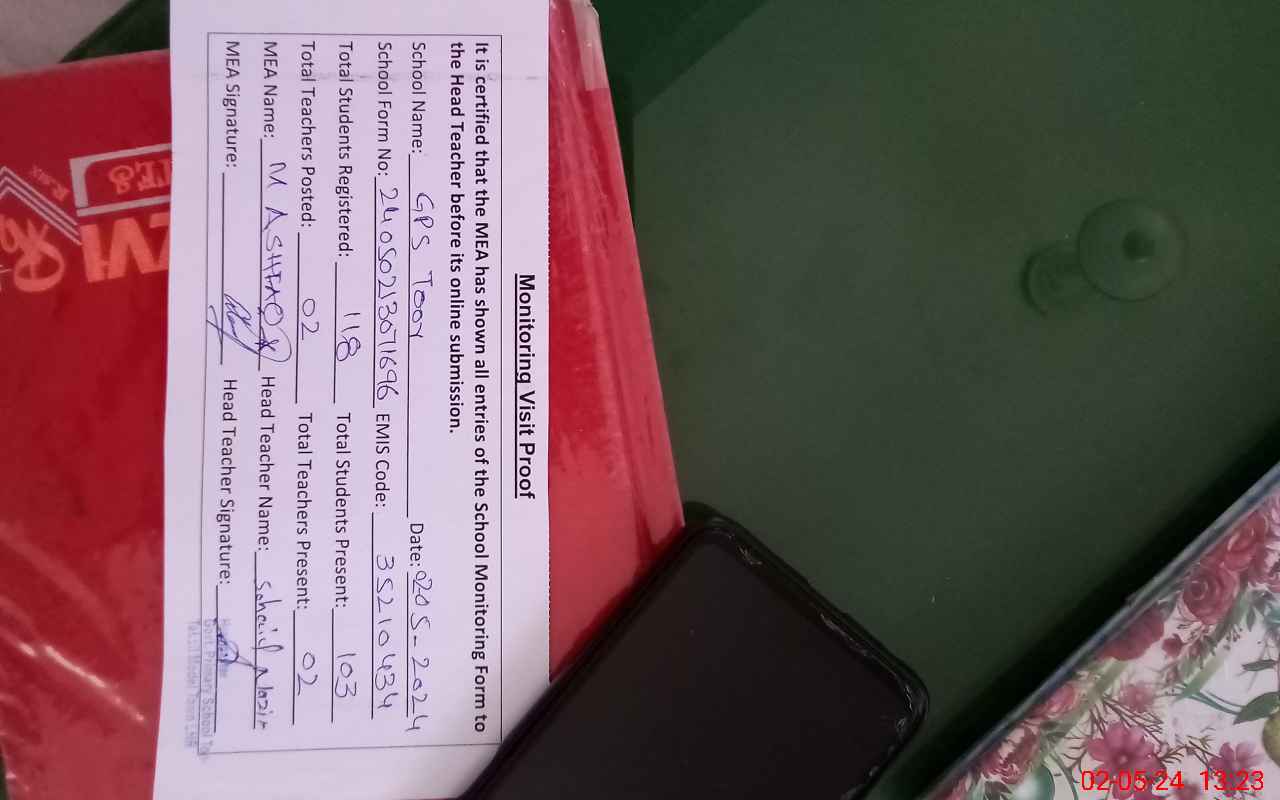 Monitoring Visit Proof
It is certified that the MEA has shown all entries of the School Monitoring Form to
the Head Teacher before its online submission.
School Name: GPS TOOR Date: 0205-2024
School Form No: 24050213071696 EMIS Code: 35210434
Total Students Registered: 118 Total Students Present: 103
Total Teachers Posted: 02 Total Teachers Present: 02
MEA Name: M ASHFAQ Head Teacher Name: Sohail Nazir
MEA Signature: Head Teacher Signature:
Govt. Primary School
Model Town LHR
02-05-24 13:23